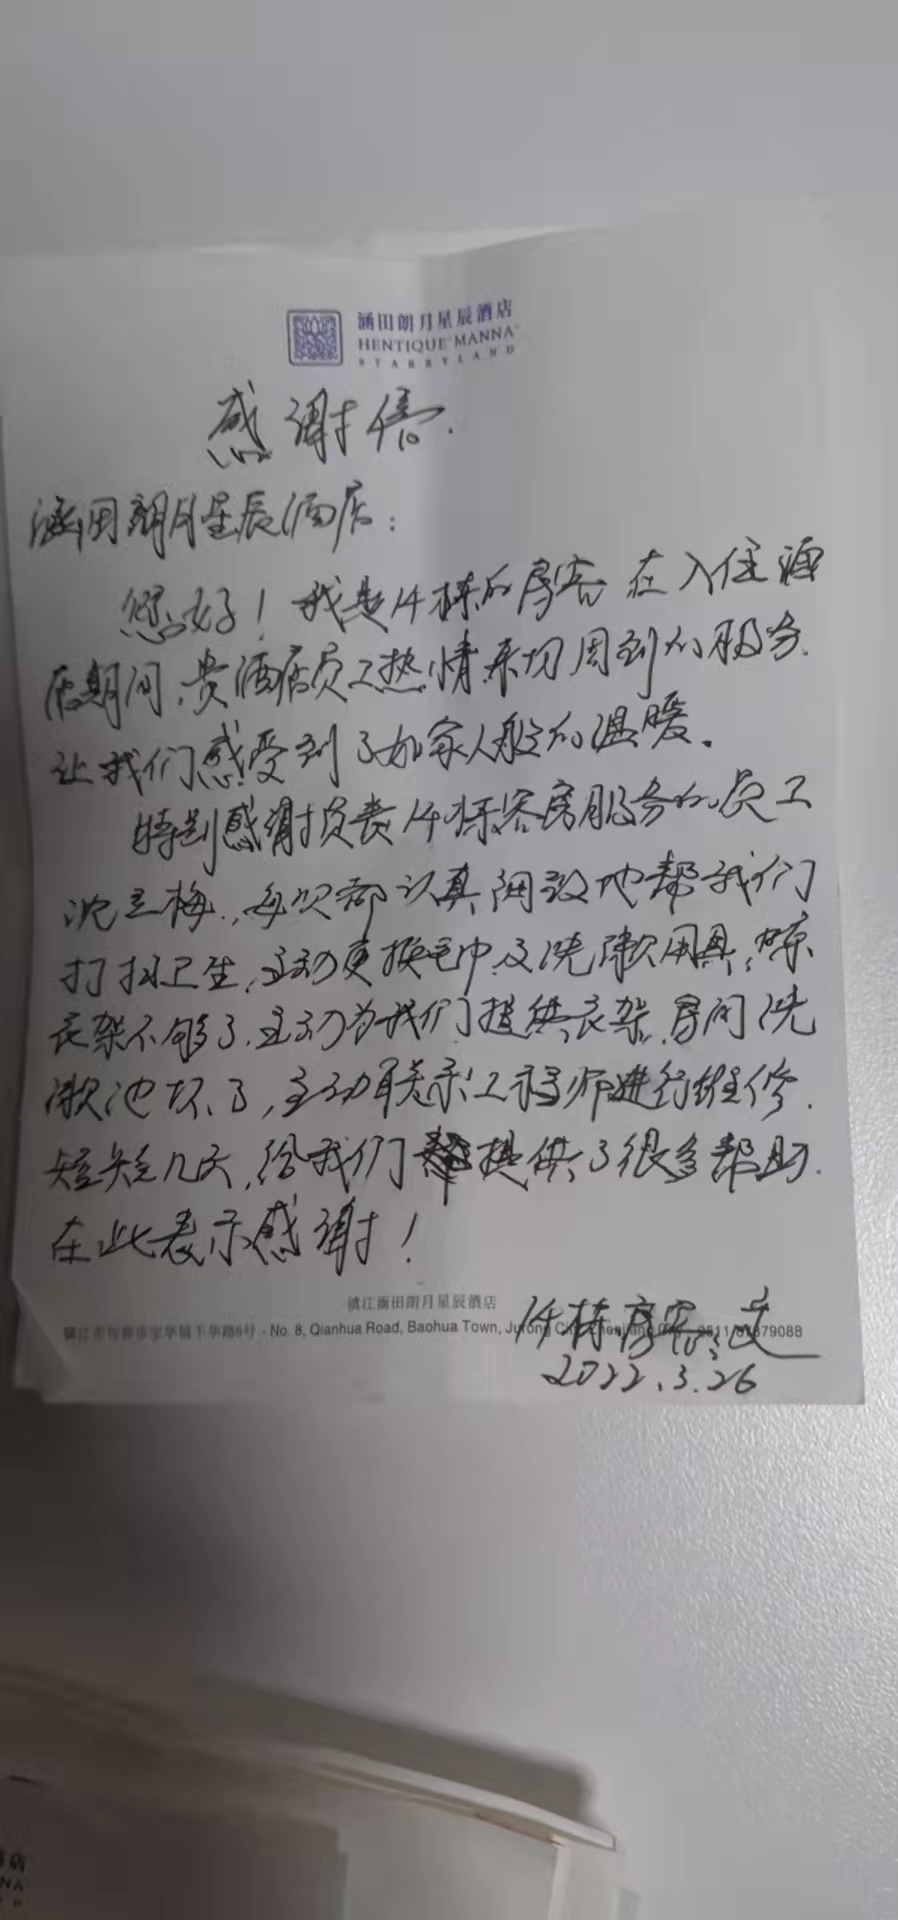 涵田朗月星辰酒店
HENTIQUE MANNA
STARRYLAND
感谢信.
涵田朗月星辰酒店:
您好!我是14栋的房客 在入住酒
店期间,贵酒店员工热情亲切周到的服务.
让我们感受到了如家人般的温暖。
特别感谢负责14栋客房服务的员工
沈立梅,每次都认真细致地帮我们
打扫卫生,主动更换毛巾及洗漱用具,晾
衣架不够了,主动为我们提供衣架,房间洗
漱池坏了,主动联系工程师进行维修.
短短几天,给我们提供了很多帮助.
在此表示感谢!
镇江涵田朗月星辰酒店
镇江市句容市宝华镇千华路8号 - No. 8, Qianhua Road, Baohua Town,
14栋房客:
2022.3.26
店
NNA